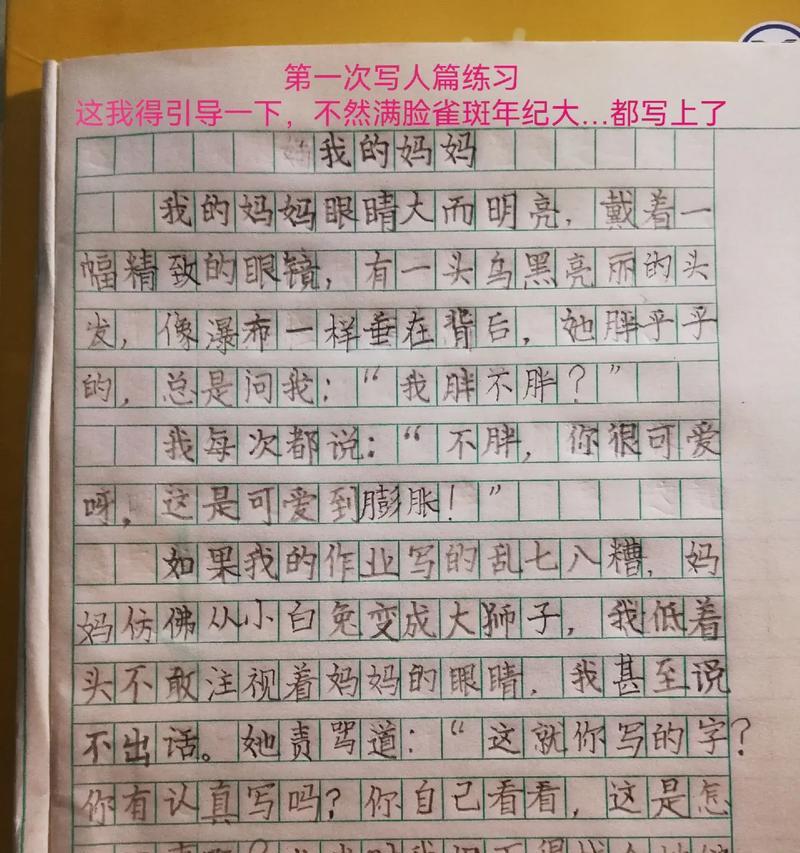 第一次写人篇练习
这我得引导一下，不然满脸雀斑年纪大...都写上了
我的妈妈
我的妈妈眼睛大而明亮，戴着一
幅精致的眼镜，有一头乌黑亮丽的头
发，像瀑布一样垂在背后，她胖乎乎
的，总是问我：“我胖不胖？”
我每次都说：“不胖，你很可爱
呀，这是可爱到膨胀！”
如果我的作业写的乱七八糟，妈
妈仿佛从小白兔变成大狮子，我低着
头不敢注视着妈妈的眼睛，我甚至说
不出话。她责骂道：“这就你写的字？
你有认真写吗？你自己看看，这是怎